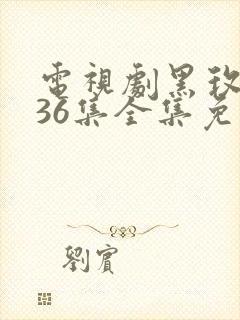 電視劇黑玫
36集全集免
劉賓